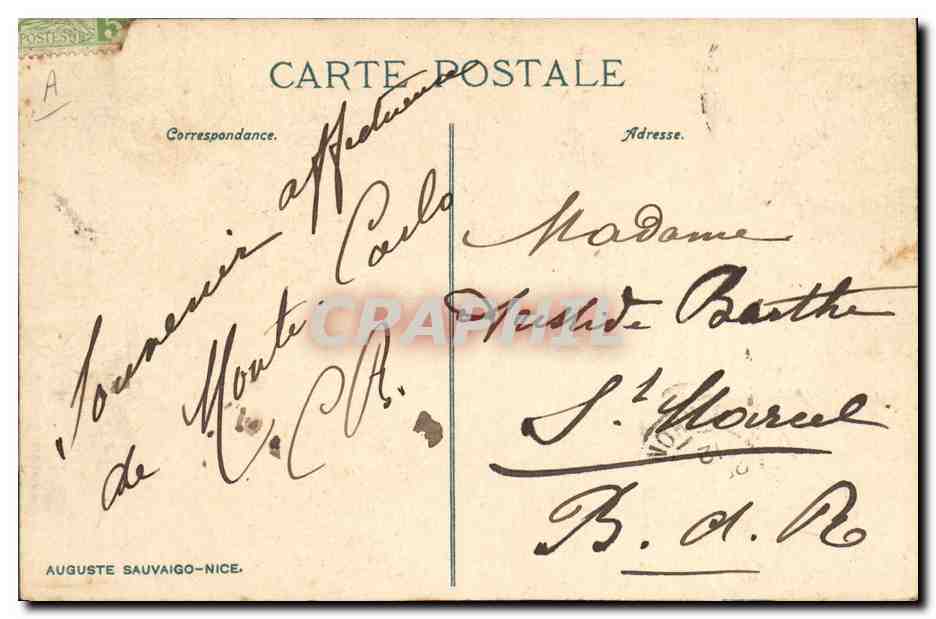 POSTES 5
A
CARTE POSTALE
Correspondance.
Adresse.
Souvenir affectueux
de Monte Carlo
C. A.
Madame
Aristide Barthe
St. Marcel
B. d. R
CRAPHIL
AUGUSTE SAUVAIGO-NICE.